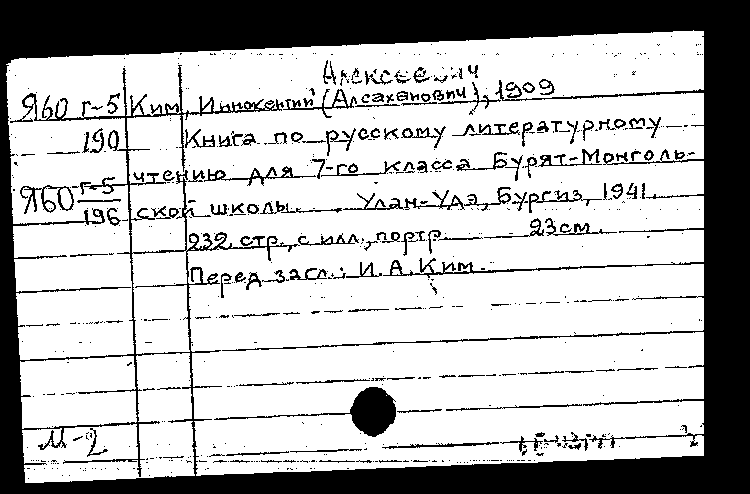 Алексеевич
Я60 г-5 Ким, Иннокентий (Алсаханович), 1909
190 Книга по русскому литературному
чтению для 7-го класса Бурят-Монголь-
Я60 г-5/196 ской школы. Улан-Удэ, Бургиз, 1941.
232 стр., с илл., портр. 23см.
Перед загл.: И. А. Ким.
М-2